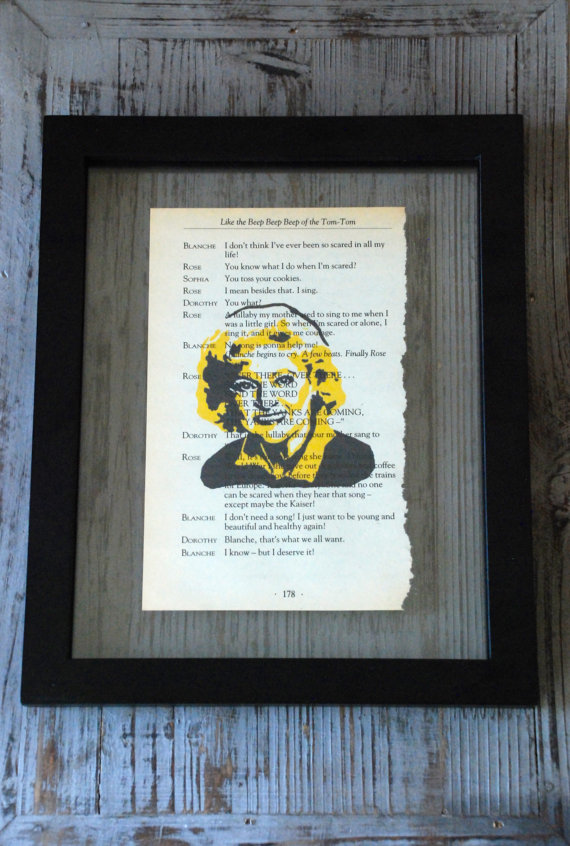 Like the Beep Beep Beep of the Tom-Tom
BLANCHE I don't think I've ever been so scared in all my
life!
ROSE You know what I do when I'm scared?
SOPHIA You toss your cookies.
ROSE I mean besides that. I sing.
DOROTHY You what?
ROSE A lullaby my mother used to sing to me when I
was a little girl. So when I'm scared or alone, I
sing it, and it gives me courage.
BLANCHE No song is gonna help me!
Blanche begins to cry. A few beats. Finally Rose
ROSE OVER THERE, OVER THERE . . .
THE WORD
THE WORD
THERE
THE YANKS ARE COMING,
YANKS ARE COMING –"
DOROTHY That is the lullaby that your mother sang to
ROSE
out coffee
before the trains
for Europe. and no one
can be scared when they hear that song –
except maybe the Kaiser!
BLANCHE I don't need a song! I just want to be young and
beautiful and healthy again!
DOROTHY Blanche, that's what we all want.
BLANCHE I know – but I deserve it!
· 178 ·